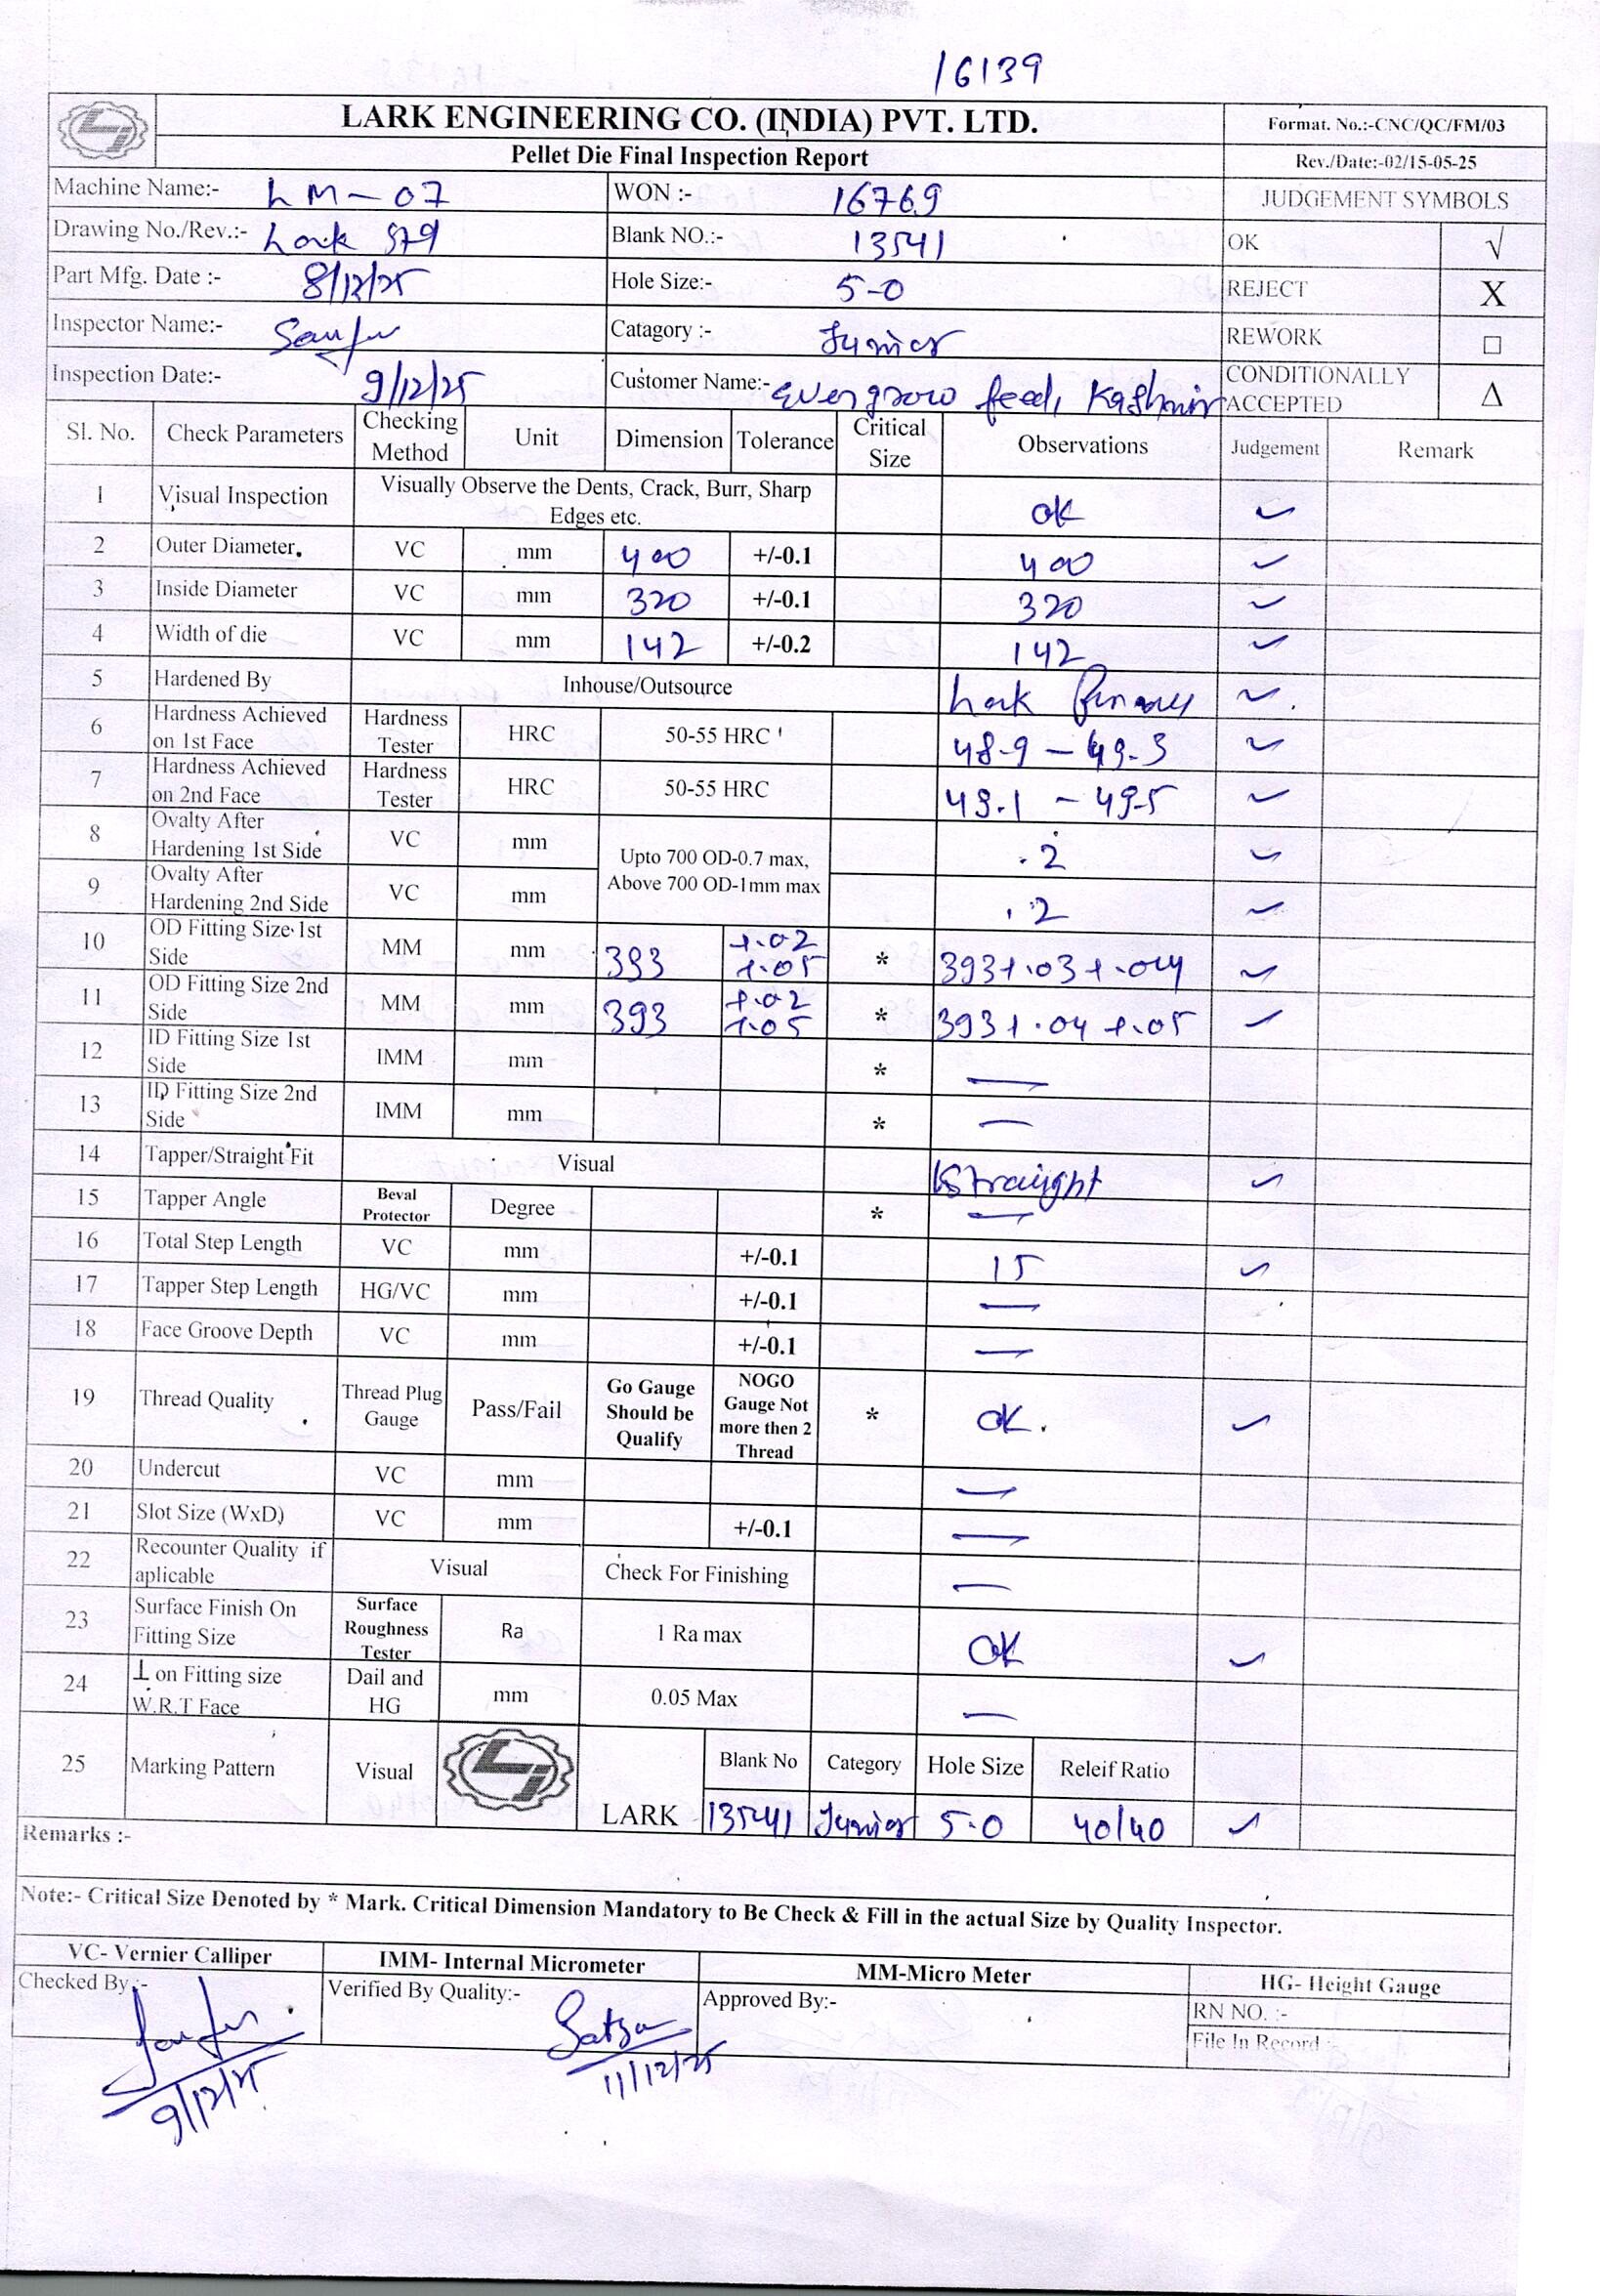 16139
LARK ENGINEERING CO. (INDIA) PVT. LTD.
Format. No.:-CNC/QC/FM/03
Pellet Die Final Inspection Report
Rev./Date:-02/15-05-25
Machine Name:- LM-07 WON :- 16769 JUDGEMENT SYMBOLS
Drawing No./Rev.:- Lark 579 Blank NO.:- 13541 OK √
Part Mfg. Date :- 8/12/25 Hole Size:- 5-0 REJECT X
Inspector Name:- Catagory :- Junior REWORK □
Inspection Date:- 9/12/25 Customer Name:- Evergrow feed, Kashmir CONDITIONALLY ACCEPTED Δ
Sl. No. Check Parameters Checking Method Unit Dimension Tolerance Critical Size Observations Judgement Remark
1 Visual Inspection Visually Observe the Dents, Crack, Burr, Sharp Edges etc. OK ✓
2 Outer Diameter. VC mm 400 +/-0.1 400 ✓
3 Inside Diameter VC mm 320 +/-0.1 320 ✓
4 Width of die VC mm 142 +/-0.2 142 ✓
5 Hardened By Inhouse/Outsource Lark ✓
6 Hardness Achieved on 1st Face Hardness Tester HRC 50-55 HRC 48.9 - 49.3 ✓
7 Hardness Achieved on 2nd Face Hardness Tester HRC 50-55 HRC 49.1 - 49.5 ✓
8 Ovalty After Hardening 1st Side VC mm Upto 700 OD-0.7 max, Above 700 OD-1mm max .2 ✓
9 Ovalty After Hardening 2nd Side VC mm .2 ✓
10 OD Fitting Size 1st Side MM mm 393 +.02 +.05 * 393+.03+.04 ✓
11 OD Fitting Size 2nd Side MM mm 393 +.02 +.05 * 393+.04+.05 ✓
12 ID Fitting Size 1st Side IMM mm * —
13 ID Fitting Size 2nd Side IMM mm * —
14 Tapper/Straight Fit Visual Straight ✓
15 Tapper Angle Beval Protector Degree * —
16 Total Step Length VC mm +/-0.1 15 ✓
17 Tapper Step Length HG/VC mm +/-0.1 —
18 Face Groove Depth VC mm +/-0.1 —
19 Thread Quality Thread Plug Gauge Pass/Fail Go Gauge Should be Qualify NOGO Gauge Not more then 2 Thread * OK. ✓
20 Undercut VC mm —
21 Slot Size (WxD) VC mm +/-0.1 —
22 Recounter Quality if aplicable Visual Check For Finishing —
23 Surface Finish On Fitting Size Surface Roughness Tester Ra 1 Ra max OK ✓
24 ⊥ on Fitting size W.R.T Face Dail and HG mm 0.05 Max —
25 Marking Pattern Visual LARK Blank No Category Hole Size Releif Ratio
13541 Junior 5.0 40/40 ✓
Remarks :-
Note:- Critical Size Denoted by * Mark. Critical Dimension Mandatory to Be Check & Fill in the actual Size by Quality Inspector.
VC- Vernier Calliper IMM- Internal Micrometer MM-Micro Meter HG- Height Gauge
Checked By :- Verified By Quality:- Approved By:- RN NO. :-
File In Record :-
9/12/25 11/12/25